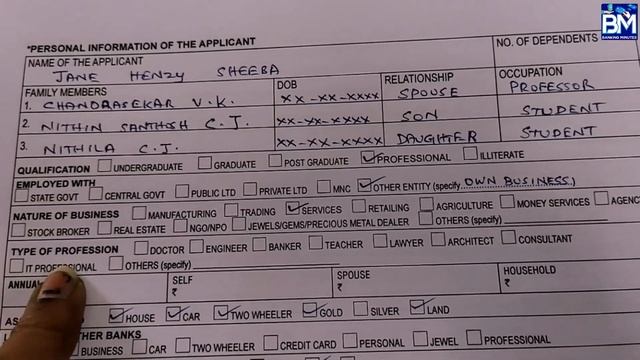 BM
BANKING MINUTES
*PERSONAL INFORMATION OF THE APPLICANT
NAME OF THE APPLICANT NO. OF DEPENDENTS
JANE HENZY SHEEBA
FAMILY MEMBERS DOB RELATIONSHIP OCCUPATION
1. CHANDRASEKAR V.K. XX-XX-XXXX SPOUSE PROFESSOR
2. NITHIN SANTHOSH C.J. XX-XX-XXXX SON STUDENT
3. NITHILA C.J. XX-XX-XXXX DAUGHTER STUDENT
QUALIFICATION UNDERGRADUATE GRADUATE POST GRADUATE PROFESSIONAL ILLITERATE
EMPLOYED WITH
STATE GOVT CENTRAL GOVT PUBLIC LTD PRIVATE LTD MNC OTHER ENTITY (specify OWN BUSINESS)
NATURE OF BUSINESS MANUFACTURING TRADING SERVICES RETAILING AGRICULTURE MONEY SERVICES
STOCK BROKER REAL ESTATE NGO/NPO JEWELS/GEMS/PRECIOUS METAL DEALER OTHERS (specify)
TYPE OF PROFESSION DOCTOR ENGINEER BANKER TEACHER LAWYER ARCHITECT CONSULTANT
IT PROFESSIONAL OTHERS (specify)
SELF SPOUSE HOUSEHOLD
₹ ₹ ₹
HOUSE CAR TWO WHEELER GOLD SILVER LAND
BANKS
BUSINESS CAR TWO WHEELER CREDIT CARD PERSONAL JEWEL PROFESSIONAL